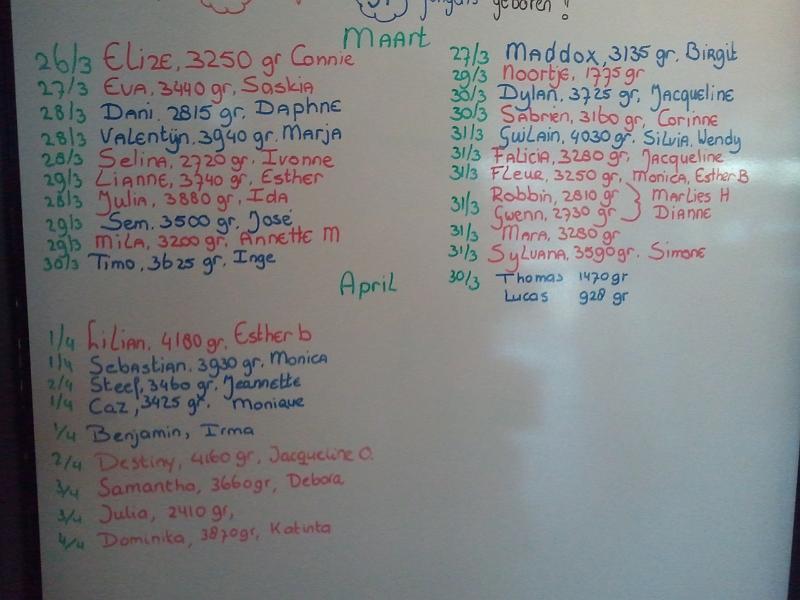 jongens geboren!
Maart
26/3 Elize, 3250 gr Connie
27/3 Eva, 3440 gr, Saskia
28/3 Dani. 2815 gr. Daphne
28/3 Valentijn. 3940 gr. Marja
28/3 Selina, 2720 gr. Ivonne
29/3 Lianne, 3740 gr. Esther
28/3 Julia, 3880 gr. Ida
29/3 Sem. 3500 gr. José
29/3 Mila, 3200 gr. Annette M
30/3 Timo, 3625 gr, Inge
27/3 Maddox, 3135 gr. Birgit
29/3 Noortje, 1775 gr
30/3 Dylan, 3725 gr, Jacqueline
30/3 Sabrien, 3160 gr, Corinne
31/3 Guilain, 4030 gr. Silvia, Wendy
31/3 Falicia, 3280 gr, Jacqueline
31/3 Fleur, 3250 gr, Monica, Esther B
31/3 Robbin, 2810 gr Marlies H
Gwenn, 2730 gr Dianne
31/3 Mara, 3280 gr
31/3 Sylvana, 3590 gr. Simone
30/3 Thomas 1470 gr
Lucas 928 gr
April
1/4 Lilian. 4180 gr. Esther b
1/4 Sebastian. 3930 gr. Monica
2/4 Steef, 3460 gr. Jeannette
1/4 Caz, 3425 gr. Monique
1/4 Benjamin, Irma
2/4 Destiny, 4160 gr, Jacqueline O.
3/4 Samantha, 3660 gr, Debora
3/4 Julia, 2410 gr,
4/4 Dominika, 3870 gr, Katinta